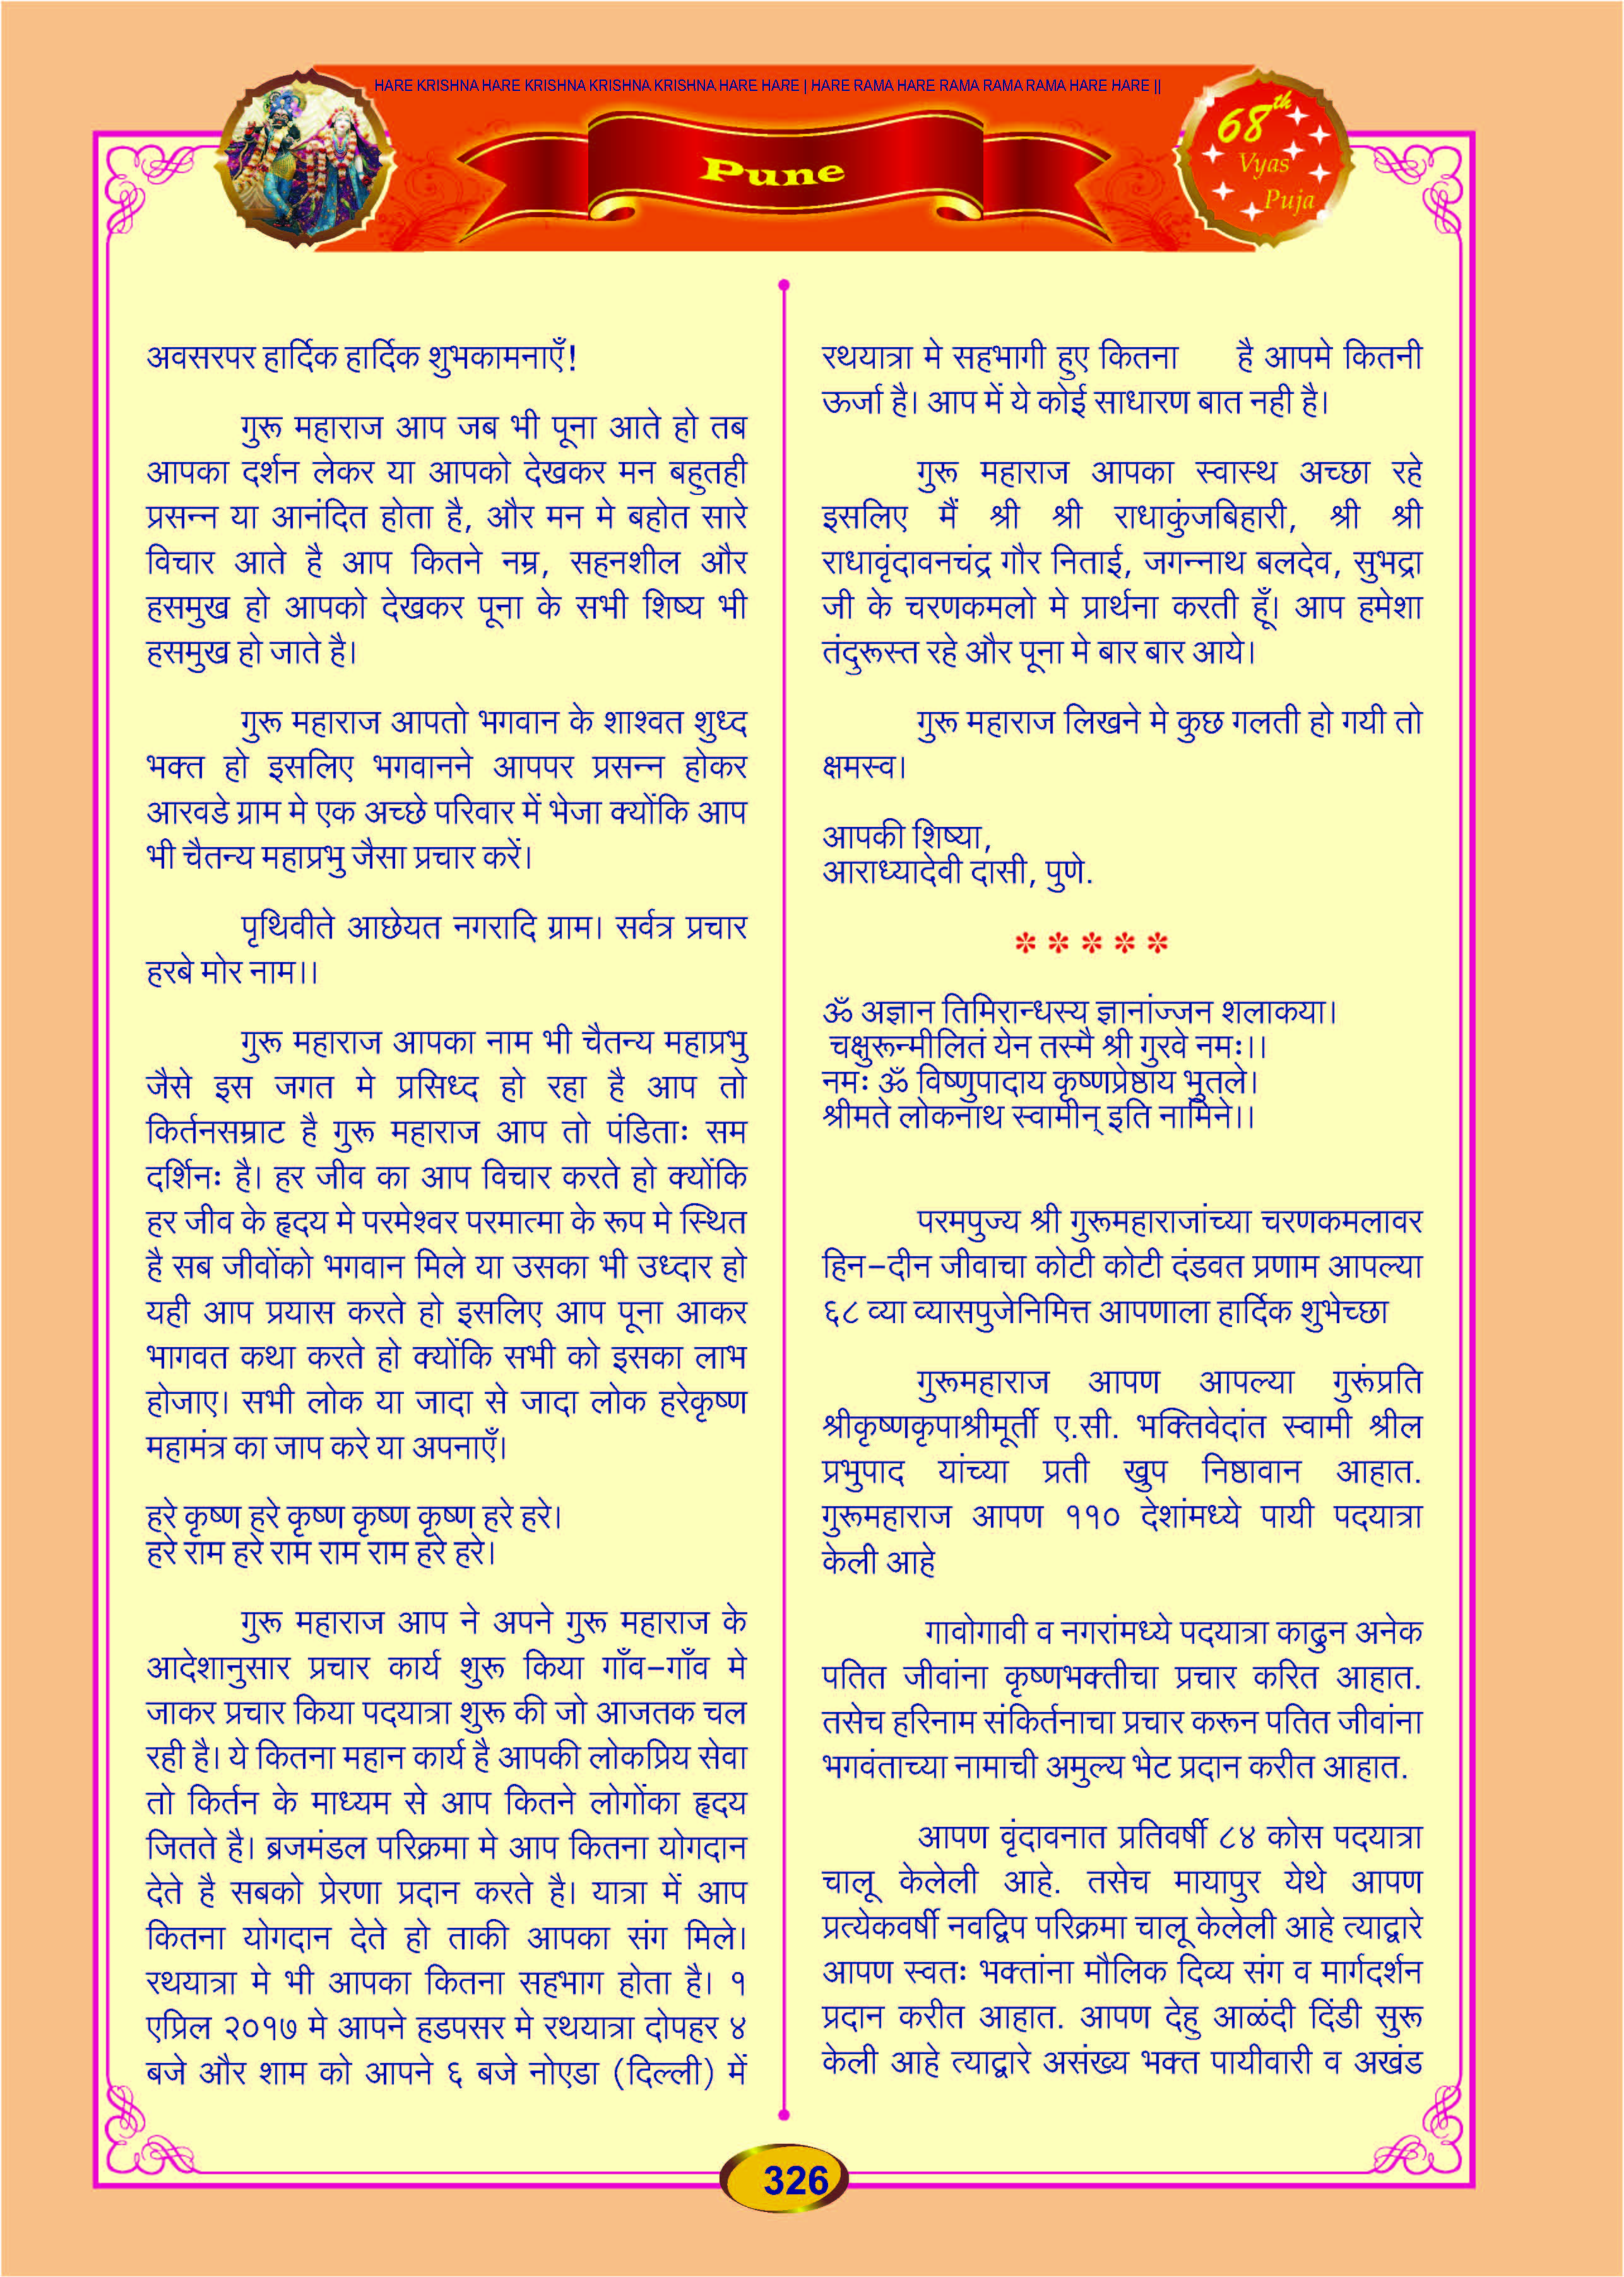 HARE KRISHNA HARE KRISHNA KRISHNA KRISHNA HARE HARE | HARE RAMA HARE RAMA RAMA RAMA HARE HARE ||
Pune
68th
Vyas
Puja
अवसरपर हार्दिक हार्दिक शुभकामनाएँ!
गुरू महाराज आप जब भी पूना आते हो तब
आपका दर्शन लेकर या आपको देखकर मन बहुतही
प्रसन्न या आनंदित होता है, और मन मे बहोत सारे
विचार आते है आप कितने नम्र, सहनशील और
हसमुख हो आपको देखकर पूना के सभी शिष्य भी
हसमुख हो जाते है।
गुरू महाराज आपतो भगवान के शाश्वत शुध्द
भक्त हो इसलिए भगवानने आपपर प्रसन्न होकर
आरवडे ग्राम मे एक अच्छे परिवार में भेजा क्योंकि आप
भी चैतन्य महाप्रभु जैसा प्रचार करें।
पृथिवीते आछेयत नगरादि ग्राम। सर्वत्र प्रचार
हरबे मोर नाम।।
गुरू महाराज आपका नाम भी चैतन्य महाप्रभु
जैसे इस जगत मे प्रसिध्द हो रहा है आप तो
किर्तनसम्राट है गुरू महाराज आप तो पंडिताः सम
दर्शिनः है। हर जीव का आप विचार करते हो क्योंकि
हर जीव के हृदय मे परमेश्वर परमात्मा के रूप मे स्थित
है सब जीवोंको भगवान मिले या उसका भी उध्दार हो
यही आप प्रयास करते हो इसलिए आप पूना आकर
भागवत कथा करते हो क्योंकि सभी को इसका लाभ
होजाए। सभी लोक या जादा से जादा लोक हरेकृष्ण
महामंत्र का जाप करे या अपनाएँ।
हरे कृष्ण हरे कृष्ण कृष्ण कृष्ण हरे हरे।
हरे राम हरे राम राम राम हरे हरे।
गुरू महाराज आप ने अपने गुरू महाराज के
आदेशानुसार प्रचार कार्य शुरू किया गाँव-गाँव मे
जाकर प्रचार किया पदयात्रा शुरू की जो आजतक चल
रही है। ये कितना महान कार्य है आपकी लोकप्रिय सेवा
तो किर्तन के माध्यम से आप कितने लोगोंका हृदय
जितते है। ब्रजमंडल परिक्रमा मे आप कितना योगदान
देते है सबको प्रेरणा प्रदान करते है। यात्रा में आप
कितना योगदान देते हो ताकी आपका संग मिले।
रथयात्रा मे भी आपका कितना सहभाग होता है। १
एप्रिल २०१७ मे आपने हडपसर मे रथयात्रा दोपहर ४
बजे और शाम को आपने ६ बजे नोएडा (दिल्ली) में
रथयात्रा मे सहभागी हुए कितना है आपमे कितनी
ऊर्जा है। आप में ये कोई साधारण बात नही है।
गुरू महाराज आपका स्वास्थ अच्छा रहे
इसलिए मैं श्री श्री राधाकुंजबिहारी, श्री श्री
राधावृंदावनचंद्र गौर निताई, जगन्नाथ बलदेव, सुभद्रा
जी के चरणकमलो मे प्रार्थना करती हूँ। आप हमेशा
तंदुरूस्त रहे और पूना मे बार बार आये।
गुरू महाराज लिखने मे कुछ गलती हो गयी तो
क्षमस्व।
आपकी शिष्या,
आराध्यादेवी दासी, पुणे.
* * * * *
ॐ अज्ञान तिमिरान्धस्य ज्ञानांज्जन शलाकया।
चक्षुरून्मीलितं येन तस्मै श्री गुरवे नमः।।
नमः ॐ विष्णुपादाय कृष्णप्रेष्ठाय भुतले।
श्रीमते लोकनाथ स्वामीन् इति नामिने।।
परमपुज्य श्री गुरूमहाराजांच्या चरणकमलावर
हिन-दीन जीवाचा कोटी कोटी दंडवत प्रणाम आपल्या
६८ व्या व्यासपुजेनिमित्त आपणाला हार्दिक शुभेच्छा
गुरूमहाराज आपण आपल्या गुरूंप्रति
श्रीकृष्णकृपाश्रीमूर्ती ए.सी. भक्तिवेदांत स्वामी श्रील
प्रभुपाद यांच्या प्रती खुप निष्ठावान आहात.
गुरूमहाराज आपण ११० देशांमध्ये पायी पदयात्रा
केली आहे
गावोगावी व नगरांमध्ये पदयात्रा काढुन अनेक
पतित जीवांना कृष्णभक्तीचा प्रचार करित आहात.
तसेच हरिनाम संकिर्तनाचा प्रचार करून पतित जीवांना
भगवंताच्या नामाची अमुल्य भेट प्रदान करीत आहात.
आपण वृंदावनात प्रतिवर्षी ८४ कोस पदयात्रा
चालू केलेली आहे. तसेच मायापुर येथे आपण
प्रत्येकवर्षी नवद्विप परिक्रमा चालू केलेली आहे त्याद्वारे
आपण स्वतः भक्तांना मौलिक दिव्य संग व मार्गदर्शन
प्रदान करीत आहात. आपण देहु आळंदी दिंडी सुरू
केली आहे त्याद्वारे असंख्य भक्त पायीवारी व अखंड
326